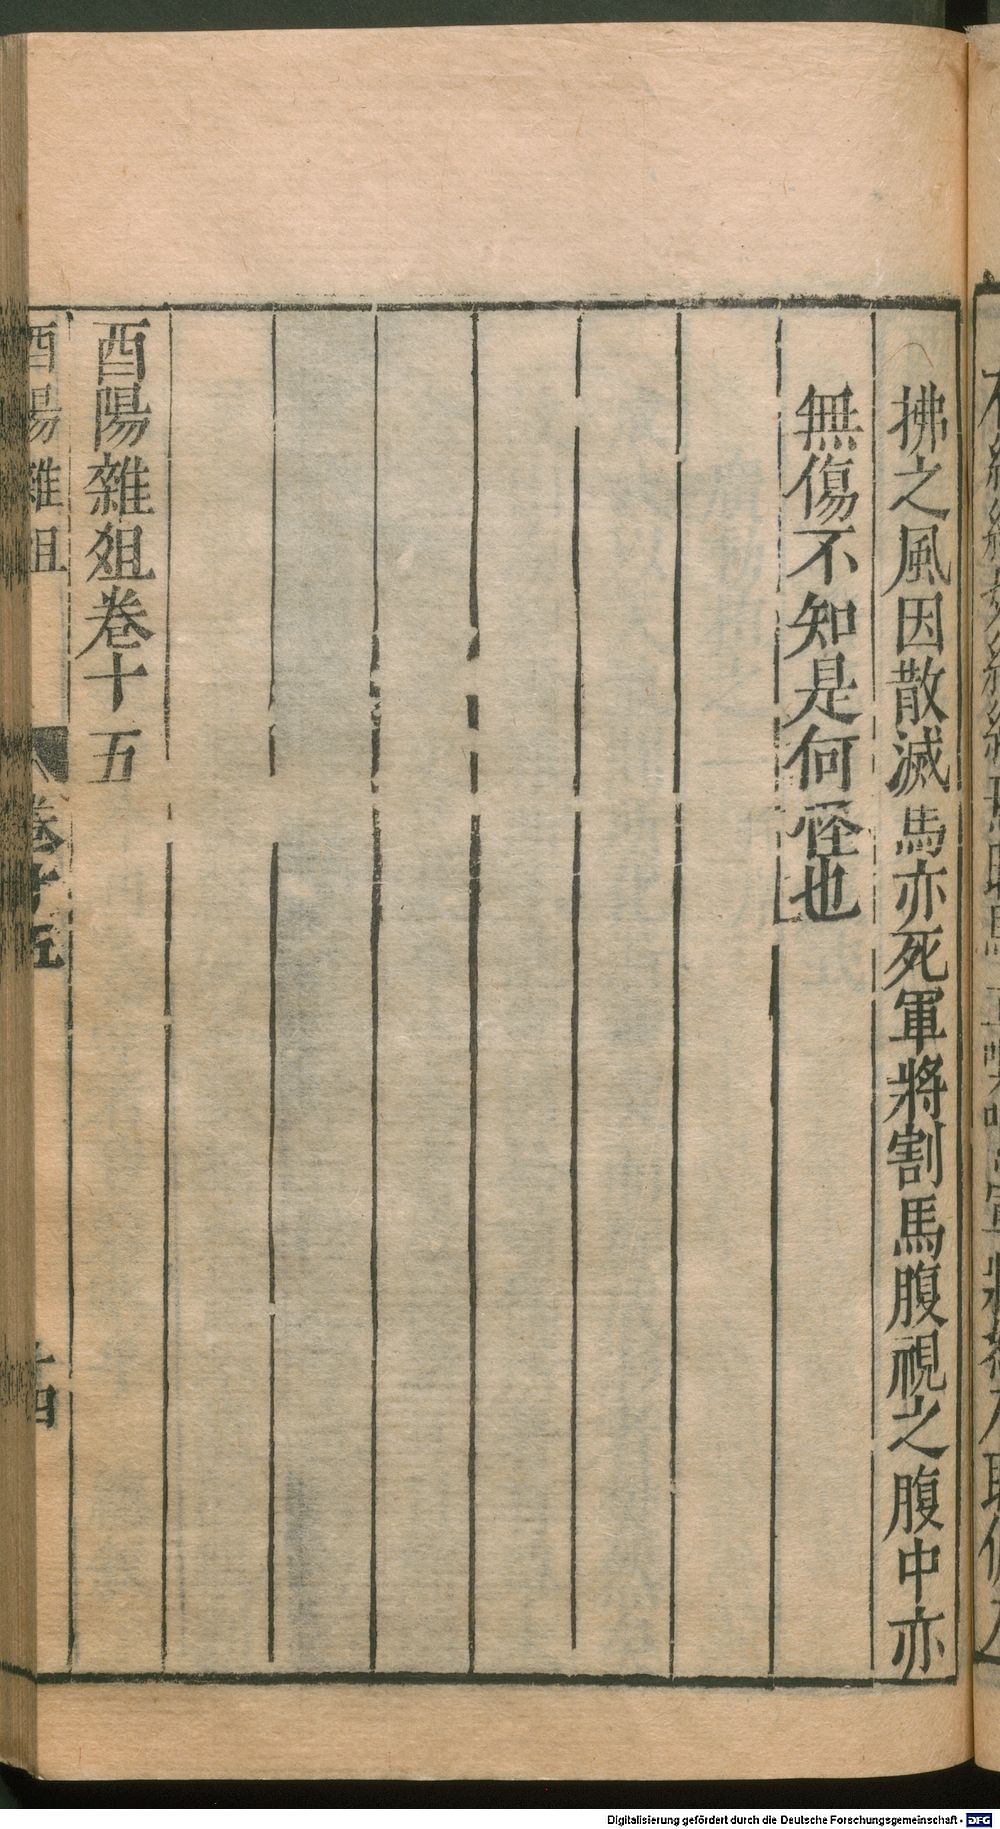 拂之風因散滅馬亦死軍將割馬腹視之腹中亦
無傷不知是何怪也
酉陽雜俎卷十五
酉陽雜俎
卷十五
十四
Digitalisierung gefördert durch die Deutsche Forschungsgemeinschaft - DFG